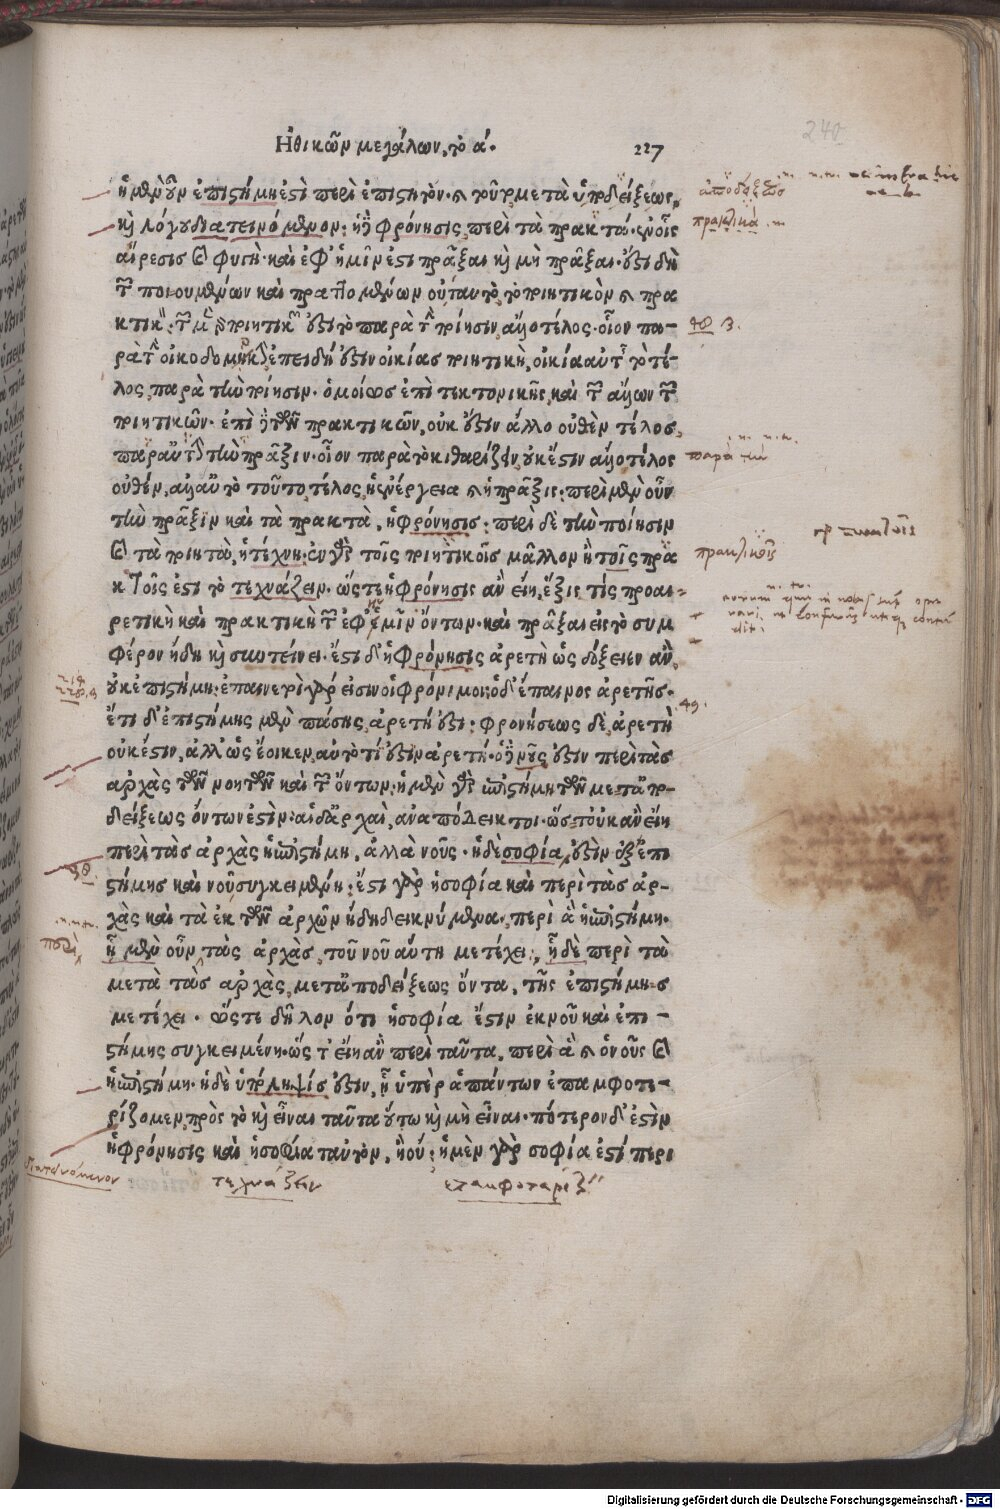 Ἠθικῶν μεγάλων, τὸ ά. 227
ἡ μὲν οὖν ἐπιστήμη ἐστὶ περὶ ἐπιστητὸν, καὶ τοῦτο μετὰ ἀποδείξεως,
καὶ λόγου διατεινόμενον: ἡ δὲ φρόνησις, περὶ τὰ πρακτά· ἐν οἷς
αἵρεσις καὶ φυγή· καὶ ἐφ' ἡμῖν ἐστι πρᾶξαι καὶ μὴ πρᾶξαι· ἔστι δὴ
τῶν ποιουμένων καὶ πραττομένων οὐ ταυτὸ, τὸ ποιητικὸν καὶ πρα
κτικόν: τῶν μὲν γὰρ ποιητικῶν ἐστὶ τὸ παρὰ τὴν ποίησιν, ἄλλο τέλος· οἷον πα-
ρὰ τὴν οἰκοδομικὴν, ἐπειδή ἐστιν οἰκίας ποιητικὴ, οἰκία αὐτῆς τὸ τέ-
λος, παρὰ τὴν ποίησιν· ὁμοίως ἐπὶ τεκτονικῆς, καὶ τῶν ἄλλων τῶν
ποιητικῶν· ἐπὶ δὲ τῶν πρακτικῶν, οὐκ ἔστιν ἄλλο οὐθὲν τέλος,
παρ' αὐτὴν τὴν πρᾶξιν· οἷον παρὰ τὸ κιθαρίζειν, οὐκ ἔστιν ἄλλο τέλος
οὐθέν, ἀλλ' αὐτὸ τοῦτο τέλος, ἡ ἐνέργεια καὶ ἡ πρᾶξις: περὶ μὲν οὖν
τὴν πρᾶξιν καὶ τὰ πρακτὰ, ἡ φρόνησις: περὶ δὲ τὴν ποίησιν
καὶ τὰ ποιητὰ, ἡ τέχνη· ἐν γὰρ τοῖς ποιητικοῖς μᾶλλον ἢ τοῖς πρα
κτοῖς ἐστι τὸ τεχνάζειν· ὥστε ἡ φρόνησις ἂν εἴη, ἕξις τὶς προαι-
ρετικὴ καὶ πρακτικὴ τῶν ἐφ' ἡμῖν ὄντων· καὶ πρᾶξαι εἰς τὸ συμ
φέρον ἤδη καὶ συντείνει· ἔστι δ' ἡ φρόνησις ἀρετὴ ὡς δόξειεν ἂν,
οὐκ ἐπιστήμη: ἐπαινετοὶ γάρ εἰσιν οἱ φρόνιμοι: ὁ δ' ἔπαινος ἀρετῆς·
ἔτι δ' ἐπιστήμης μὲν πάσης, ἀρετή ἐστι: φρονήσεως δὲ, ἀρετὴ
οὐκ ἔστιν, ἀλλ' ὡς ἔοικεν, αὐτὸ τί ἐστιν ἀρετή· ὁ δὲ νοῦς ἐστιν περὶ τὰς
ἀρχὰς τῶν νοητῶν καὶ τῶν ὄντων: ἡ μὲν γὰρ ἐπιστήμη τῶν μετ' ἀπο-
δείξεως ὄντων ἐστὶν: αἱ δ' ἀρχαὶ, ἀναπόδεικτοι· ὥστ' οὐκ ἂν εἴη
περὶ τὰς ἀρχὰς ἡ ἐπιστήμη, ἀλλὰ νοῦς· ἡ δὲ σοφία, ἐστὶν ἐξ ἐπι
στήμης καὶ νοῦ συγκειμένη: ἔστι γὰρ ἡ σοφία καὶ περὶ τὰς ἀρ-
χὰς καὶ τὰ ἐκ τῶν ἀρχῶν ἤδη δεικνύμενα, περὶ ἃ ἡ ἐπιστήμη·
ᾗ μὲν οὖν τὰς ἀρχὰς, τοῦ νοῦ αὕτη μετέχει, ᾗ δὲ περὶ τὰ
μετὰ τὰς ἀρχὰς, μετ' ἀποδείξεως ὄντα, τῆς ἐπιστήμης
μετέχει· ὥστε δῆλον ὅτι ἡ σοφία ἐστὶν ἐκ νοῦ καὶ ἐπι-
στήμης συγκειμένη· ὥς τ' εἴη ἂν περὶ ταῦτα, περὶ ἃ καὶ ὁ νοῦς καὶ
ἡ ἐπιστήμη· ἡ δὲ ὑπόληψίς ἐστιν, ᾗ ὑπὲρ ἁπάντων ἐπαμφοτε-
ρίζομεν, πρὸς τὸ καὶ εἶναι ταῦτα οὕτω καὶ μὴ εἶναι· πότερον δ' ἐστὶν
ἡ φρόνησις καὶ ἡ σοφία ταὐτὸν, ἢ οὔ: ἡ μὲν γὰρ σοφία ἐστί περι
240
ἀποδείξεως
πρακτικά
παρὰ τὴν
πρακτικοῖς
49.
περὶ
διατεινόμενον τεχνάζειν ἐπαμφοτερίζειν
Digitalisierung gefördert durch die Deutsche Forschungsgemeinschaft - DFG